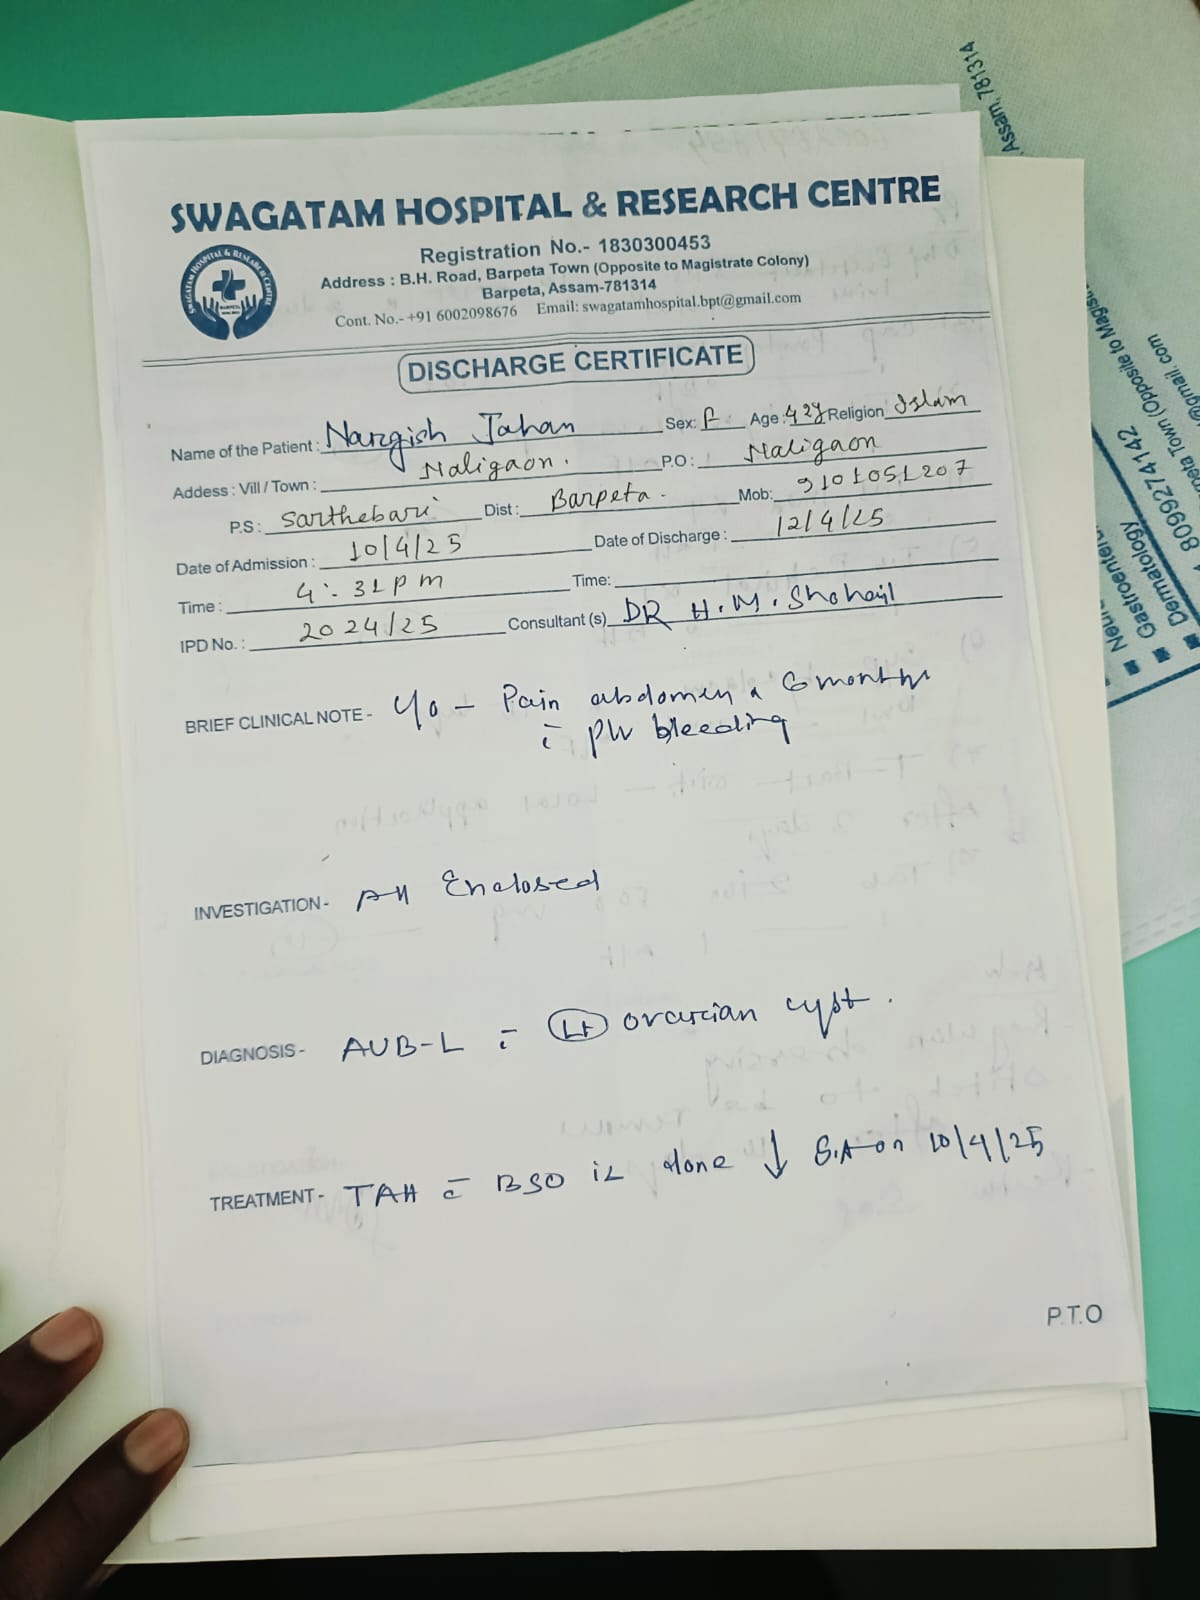 SWAGATAM HOSPITAL & RESEARCH CENTRE
Registration No.- 1830300453
Address : B.H. Road, Barpeta Town (Opposite to Magistrate Colony)
Barpeta, Assam-781314
Cont. No.- +91 6002098676 Email: swagatamhospital.bpt@gmail.com
SWAGATAM HOSPITAL & RESEARCH CENTRE
DISCHARGE CERTIFICATE
Name of the Patient : Nargish Jahan Sex: F Age : 42y Religion Islam
Addess : Vill / Town : Naligaon. P.O : Naligaon
P.S : Sarthebari Dist : Barpeta. Mob: 9101051207
Date of Admission : 10/4/25 Date of Discharge : 12/4/25
Time : 4:31pm Time:
IPD No. : 2024/25 Consultant (s) DR H.M. Shohail
BRIEF CLINICAL NOTE - Pain abdomen 6 months
P/V bleeding
INVESTIGATION - All Enclosed
DIAGNOSIS - AUB-L c̄ Lt ovarian cyst.
TREATMENT - TAH c̄ BSO is done ↓ S.A on 10/4/25
P.T.O
Assam, 781314
8099274142
Gastroenter
Dermatology